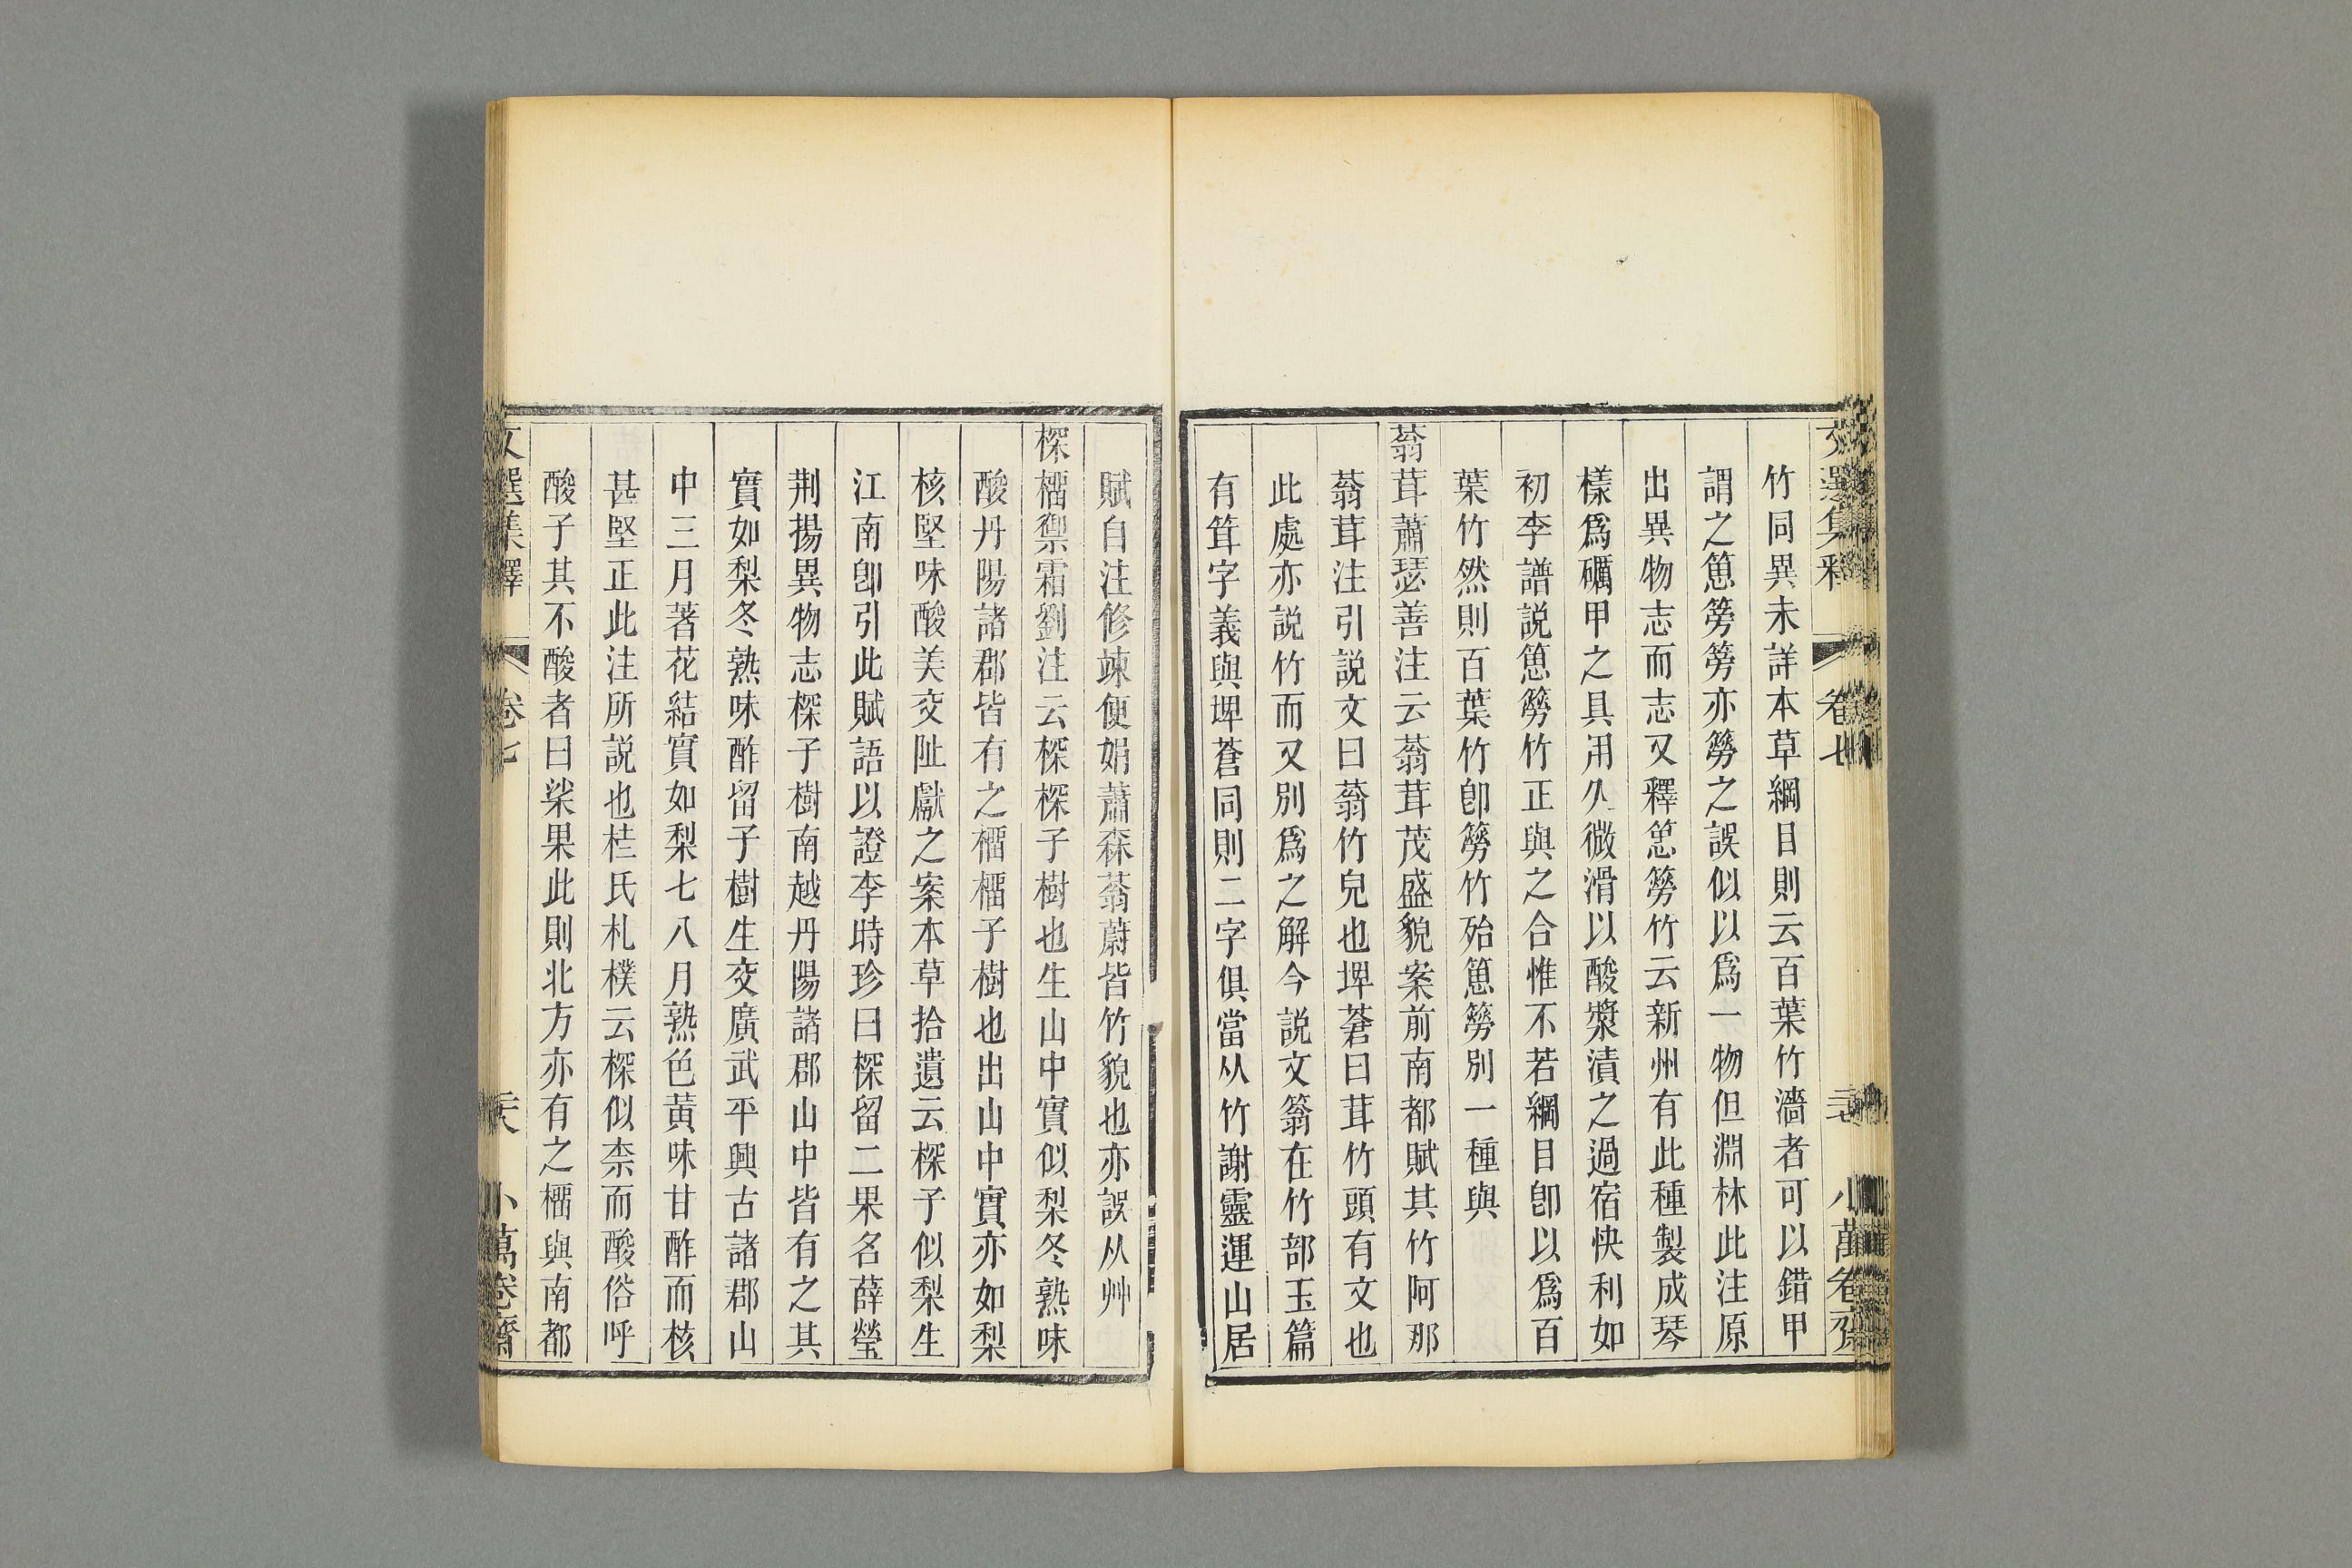 文選集釋 卷七 小萬卷齋
竹同異未詳本草綱目則云百葉竹濇者可以錯甲
謂之𥴈簩簩亦簩之誤似以爲一物但淵林此注原
出異物志而志又釋𥴈簩竹云新州有此種製成琴
樣爲礪甲之具用久微滑以酸漿漬之過宿快利如
初李譜説𥴈簩竹正與之合惟不若綱目卽以爲百
葉竹然則百葉竹卽簩竹殆𥴈簩別一種與
蓊茸蕭瑟善注云蓊茸茂盛貌案前南都賦其竹阿那
蓊茸注引説文曰蓊竹皃也埤蒼曰茸竹頭有文也
此處亦説竹而又別爲之解今説文䈵在竹部玉篇
有䇯字義與埤蒼同則二字俱當从竹謝靈運山居
賦自注修竦便娟蕭森蓊蔚皆竹貌也亦誤从艸
棎橊禦霜劉注云棎棎子樹也生山中實似梨冬熟味
酸丹陽諸郡皆有之橊橊子樹也出山中實亦如梨
核堅味酸美交阯獻之案本草拾遺云棎子似梨生
江南卽引此賦語以證李時珍曰棎留二果名薛瑩
荆揚異物志棎子樹南越丹陽諸郡山中皆有之其
實如梨冬熟味酢留子樹生交廣武平興古諸郡山
中三月著花結實如梨七八月熟色黃味甘酢而核
甚堅正此注所説也桂氏札樸云棎似柰而酸俗呼
酸子其不酸者曰棠果此則北方亦有之橊與南都
文選集釋 卷七 二六 小萬卷齋